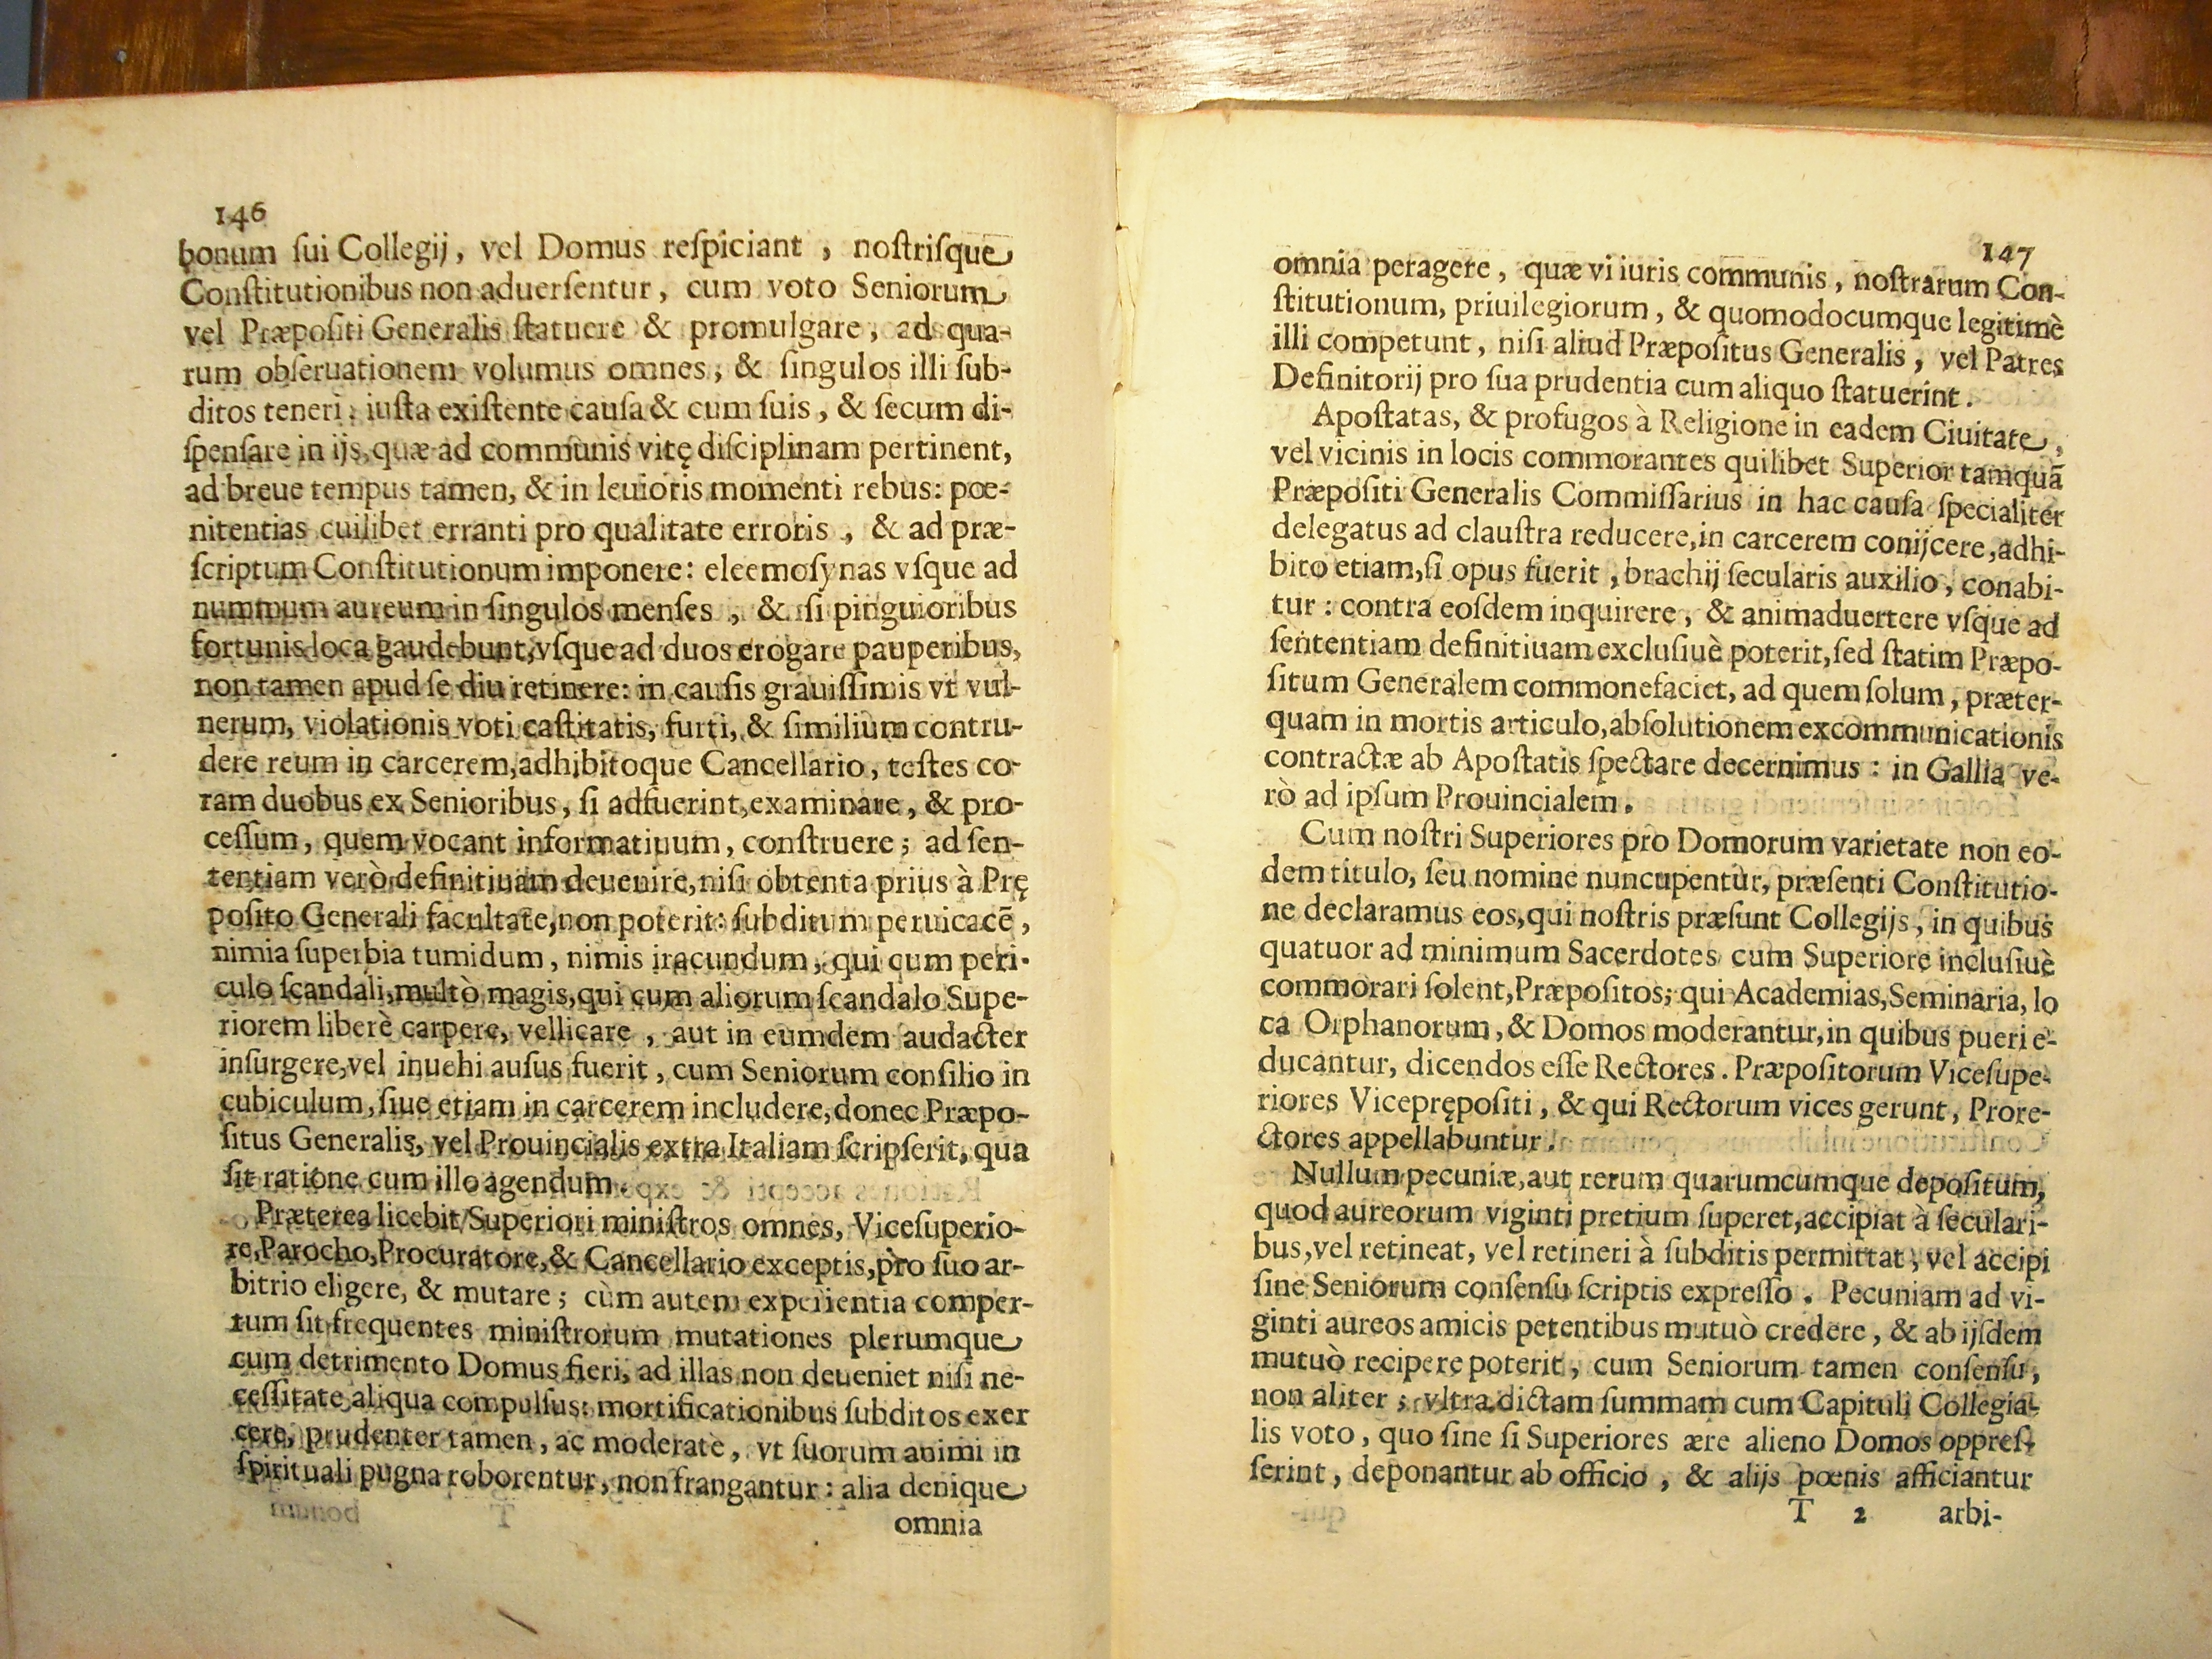 146
bonum ſui Collegij, vel Domus reſpiciant, noſtriſque
Conſtitutionibus non aduerſentur, cum voto Seniorum
vel Præpoſiti Generalis ſtatuere & promulgare, ad qua-
rum obſeruationem volumus omnes, & ſingulos illi ſub-
ditos teneri: iuſta exiſtente cauſa & cum ſuis, & ſecum di-
ſpenſare in ijs, quæ ad communis vitę diſciplinam pertinent,
ad breue tempus tamen, & in leuioris momenti rebus: poe-
nitentias cuilibet erranti pro qualitate erroris, & ad præ-
ſcriptum Conſtitutionum imponere: eleemoſynas vſque ad
nummum aureum in ſingulos menſes, & ſi pinguioribus
fortunis loca gaudebunt, vſque ad duos erogare pauperibus,
non tamen apud ſe diu retinere: in cauſis grauiſſimis vt vul-
nerum, violationis voti caſtitatis, furti, & ſimilium contru-
dere reum in carcerem, adhibitoque Cancellario, teſtes co-
ram duobus ex Senioribus, ſi adfuerint, examinare, & pro-
ceſſum, quem vocant informatiuum, conſtruere; ad ſen-
tentiam verò definitiuam deuenire, niſi obtenta prius à Prę
poſito Generali facultate, non poterit: ſubditum peruicacē,
nimia ſuperbia tumidum, nimis iracundum, qui cum peri-
culo ſcandali, multò magis, qui cum aliorum ſcandalo Supe-
riorem liberè carpere, vellicare, aut in eumdem audacter
inſurgere, vel inuehi auſus fuerit, cum Seniorum conſilio in
cubiculum, ſiue etiam in carcerem includere, donec Præpo-
ſitus Generalis, vel Prouincialis extra Italiam ſcripſerit, qua
ſit ratione cum illo agendum.
Præterea licebit Superiori miniſtros omnes, Viceſuperio-
re, Parocho, Procuratore, & Cancellario exceptis, pro ſuo ar-
bitrio eligere, & mutare; cùm autem experientia comper-
tum ſit frequentes miniſtrorum mutationes plerumque
cum detrimento Domus fieri, ad illas non deueniet niſi ne-
ceſſitate aliqua compulſus: mortificationibus ſubditos exer
cere, prudenter tamen, ac moderatè, vt ſuorum animi in
ſpirituali pugna roborentur, non frangantur: alia denique
omnia
147
omnia peragere, quæ vi iuris communis, noſtrarum Con-
ſtitutionum, priuilegiorum, & quomodocumque legitimè
illi competunt, niſi aliud Præpoſitus Generalis, vel Patres
Definitorij pro ſua prudentia cum aliquo ſtatuerint.
Apoſtatas, & profugos à Religione in eadem Ciuitate,
vel vicinis in locis commorantes quilibet Superior tamquā
Præpoſiti Generalis Commiſſarius in hac cauſa ſpecialiter
delegatus ad clauſtra reducere, in carcerem conijcere, adhi-
bito etiam, ſi opus fuerit, brachij ſecularis auxilio, conabi-
tur: contra eoſdem inquirere, & animaduertere vſque ad
ſententiam definitiuam excluſiuè poterit, ſed ſtatim Præpo-
ſitum Generalem commonefaciet, ad quem ſolum, præter-
quam in mortis articulo, abſolutionem excommunicationis
contractæ ab Apoſtatis ſpectare decernimus: in Gallia ve-
rò ad ipſum Prouincialem.
Cum noſtri Superiores pro Domorum varietate non eo-
dem titulo, ſeu nomine nuncupentùr, præſenti Conſtitutio-
ne declaramus eos, qui noſtris præſunt Collegijs, in quibus
quatuor ad minimum Sacerdotes cum Superiore incluſiuè
commorari ſolent, Præpoſitos; qui Academias, Seminaria, lo
ca Orphanorum, & Domos moderantur, in quibus pueri e-
ducantur, dicendos eſſe Rectores. Præpoſitorum Viceſupe-
riores Viceprępoſiti, & qui Rectorum vices gerunt, Prore-
ctores appellabuntur.
Nullum pecuniæ, aut rerum quarumcumque depoſitum,
quod aureorum viginti pretium ſuperet, accipiat à ſeculari-
bus, vel retineat, vel retineri à ſubditis permittat, vel accipi
ſine Seniorum conſenſu ſcriptis expreſſo. Pecuniam ad vi-
ginti aureos amicis petentibus mutuò credere, & ab ijſdem
mutuò recipere poterit, cum Seniorum tamen conſenſu,
non aliter; vltra dictam ſummam cum Capituli Collegia-
lis voto, quo ſine ſi Superiores ære alieno Domos oppreſ-
ſerint, deponantur ab officio, & alijs pœnis afficiantur
T 2 arbi-